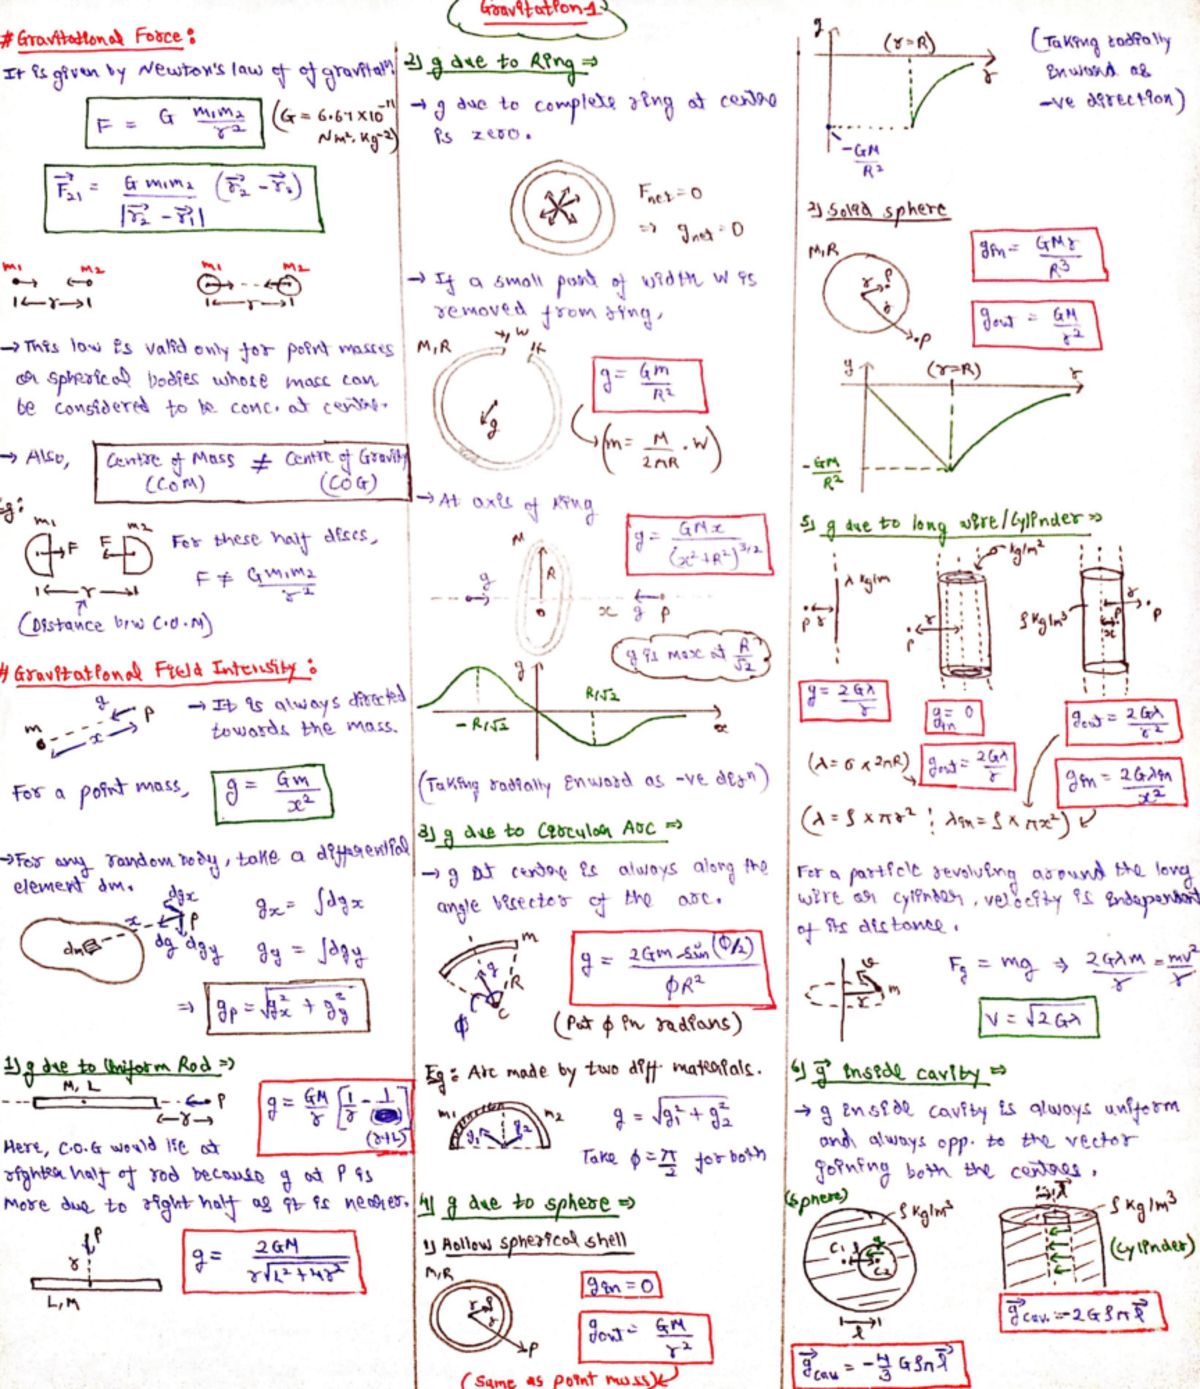 Gravitation-1
# Gravitational Force:
It is given by Newton's law of of gravitatn:
F = G m₁m₂/r² (G = 6.67×10⁻¹¹
Nm². Kg⁻²)
F⃗₂₁ = G m₁m₂/|r⃗₂ - r⃗₁| (r⃗₂ - r⃗₁)
m₁ m₂ m₁ m₂
r r
→ This law is valid only for point masses
or spherical bodies whose mass can
be considered to be conc. at centre.
→ Also, Centre of Mass ≠ Centre of Gravity
(COM) (COG)
Eg:
m₁ m₂
F F
r
For these half discs,
F ≠ Gm₁m₂/r²
(Distance b/w C.O.M)
# Gravitational Field Intensity:
m x g P
→ It is always directed
towards the mass.
For a point mass, g = Gm/x²
→ For any random body, take a differential
element dm.
dm x dgx P
dg dgy
gx = ∫dgx
gy = ∫dgy
⇒ gp = √gx² + gy²
1) g due to Uniform Rod ⇒
M, L
P
r
g = GM/r [1/r - 1/(r+L)]
Here, C.O.G would lie at
righter half of rod because g at P is
more due to right half as it is nearer.
P
r
L, M
g = 2GM/r√L²+4r²
2) g due to Ring ⇒
→ g due to complete ring at centre
is zero.
Fnet = 0
⇒ gnet = 0
→ If a small part of width W is
removed from ring,
M, R W
g
g = Gm/R²
(m = M/2πR . W)
→ At axis of ring
M
R
g
x g P
g = GMx/(x²+R²)^3/2
g is max at R/√2
g
-R/√2
R/√2
x
(Taking radially inward as -ve dirn)
3) g due to Circular Arc ⇒
→ g at centre is always along the
angle bisector of the arc.
m
g
R
φ C
g = 2Gm sin(φ/2)/φR²
(Put φ in radians)
Eg: Arc made by two diff. materials.
m₁ m₂
g₁ g₂
g = √g₁² + g₂²
Take φ = π/2 for both
4) g due to sphere ⇒
1) Hollow spherical shell
M, R
r P
r
P
gin = 0
gout = GM/r²
(Same as point mass)
g
(r=R)
r
-GM/R²
(Taking radially
inward as
-ve direction)
2) Solid sphere
M, R
r P
r
P
gin = GMr/R³
gout = GM/r²
g (r=R) r
-GM/R²
5) g due to long wire/cylinder ⇒
λ kg/m
P r
σ kg/m²
P r
ρ Kg/m³
r P
P
x
g = 2Gλ/r
gin = 0
gout = 2Gλ/r²
(λ = σ × 2πR) gout = 2Gλ/r
gin = 2Gλin/x²
(λ = ρ × πr² ; λin = ρ × πx²)
For a particle revolving around the long
wire or cylinder, velocity is independent
of its distance.
v
r m
Fg = mg ⇒ 2Gλm/r = mv²/r
V = √2Gλ
6) g⃗ inside cavity ⇒
→ g inside cavity is always uniform
and always opp. to the vector
joining both the centres.
(Sphere)
ρ Kg/m³
C₁ g
C₂
l
g⃗cav = -4/3 Gρπl⃗
l⃗
ρ Kg/m³
(Cylinder)
g⃗cav. = -2Gρπl⃗